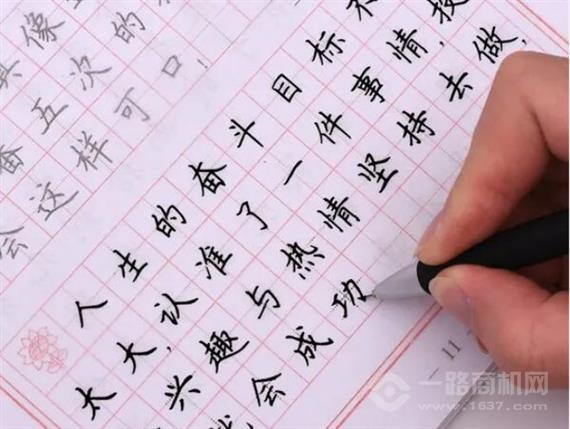 具像
奋五次的
会这样可口!
人生的奋斗目标不
太大,认准了一件事情,投
兴趣与热情坚持去做,
就会成功
11
一路商机网
www.1637.com